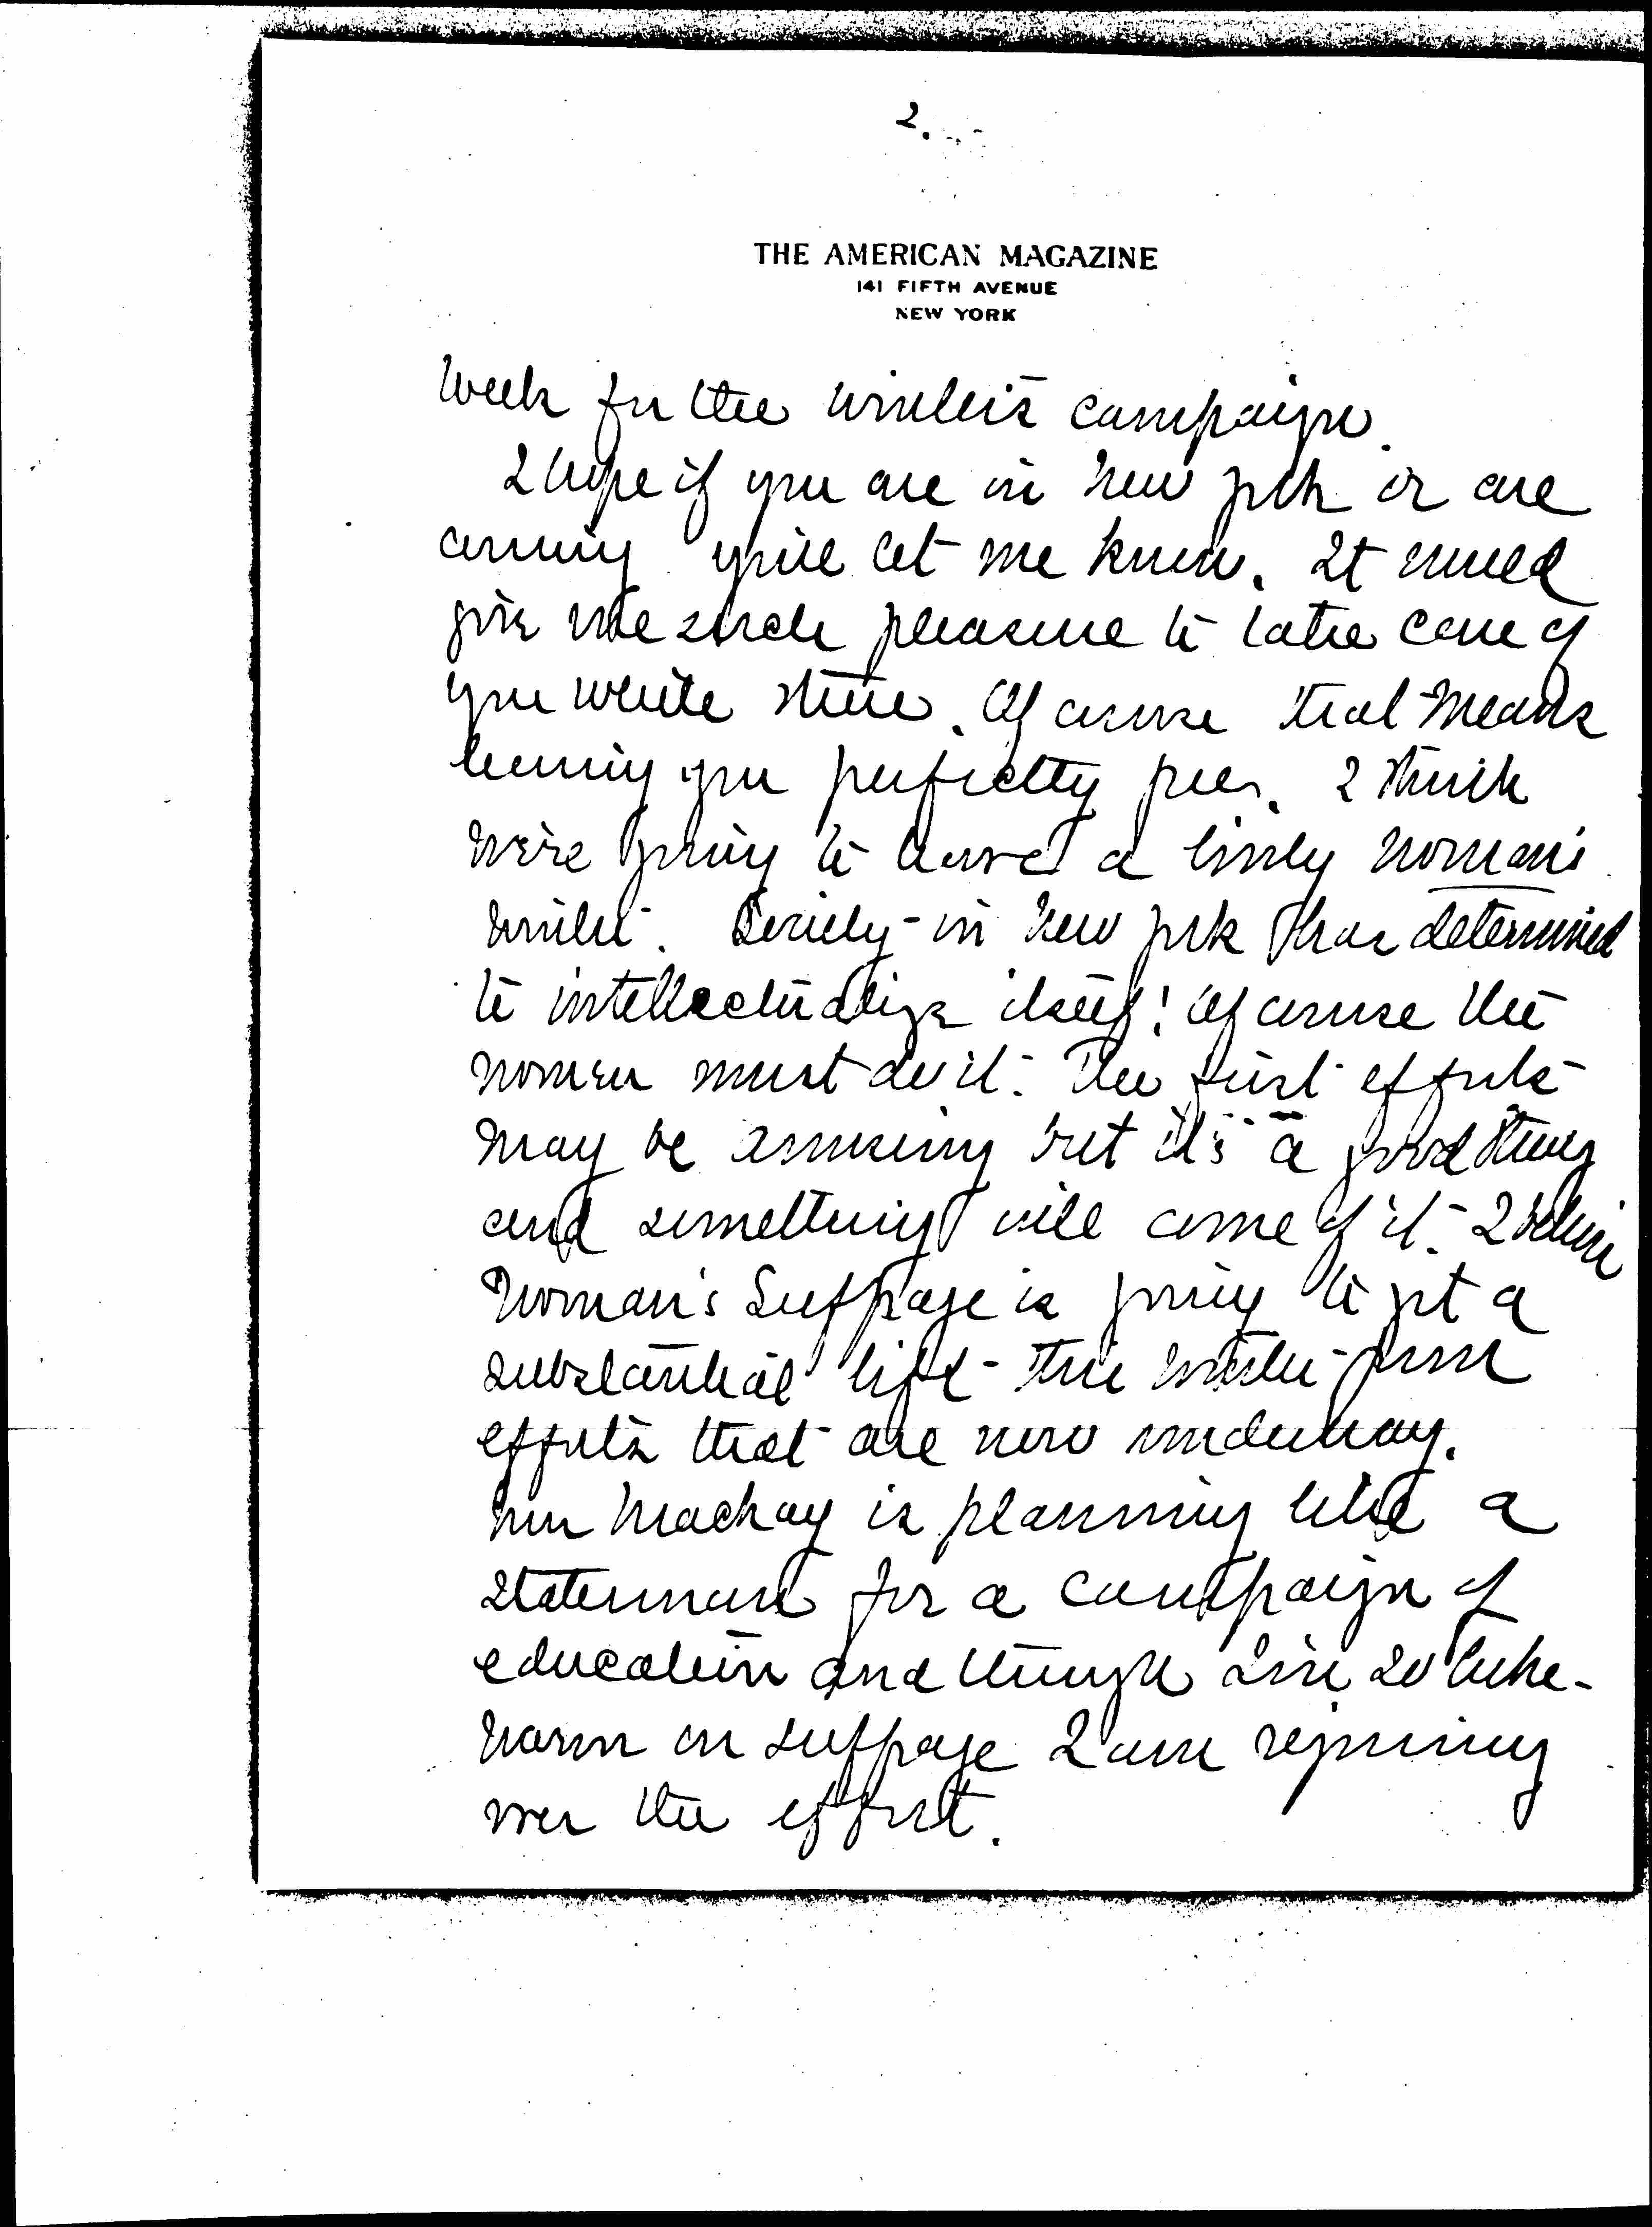 2.
THE AMERICAN MAGAZINE
141 FIFTH AVENUE
NEW YORK
week for the winter's campaign.
I hope if you are in New York or are
coming you'll let me know. It would
give me such pleasure to take care of
you while there. Of course that means
leaving you perfectly free. I think
we're going to have a lively woman's
winter. Society in New York has determined
to intellectualize itself! Of course the
women must do it. The first efforts
may be amusing but it's a good thing
and something will come of it. I believe
Woman's Suffrage is going to get a
substantial lift this winter from
efforts that are now underway.
Mrs Mackay is planning like a
statesman for a campaign of
education and though I'm so luke-
warm on suffrage I am rejoicing
over the effort.